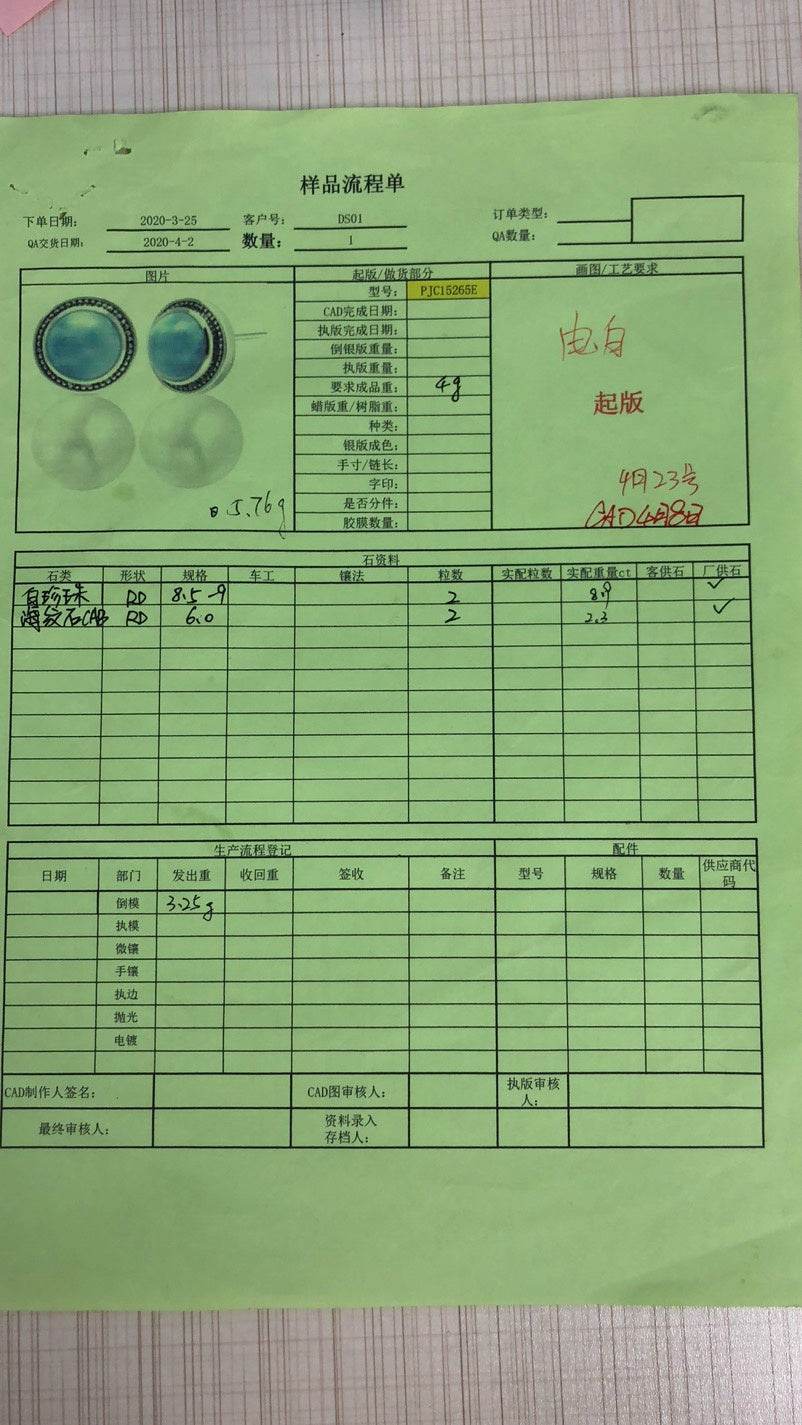 样品流程单
下单日期: 2020-3-25 客户号: DS01 订单类型:
QA交货日期: 2020-4-2 数量: 1 QA数量:
图片 起版/做货部分 画图/工艺要求
型号: PJC15265E
CAD完成日期:
执版完成日期:
倒银版重量:
执版重量:
要求成品重: 4g
蜡版重/树脂重:
种类:
银版成色:
手寸/链长:
字印:
是否分件:
胶膜数量:
5.76g
电白
起版
4月23号
CAD4月8日
石资料
石类 形状 规格 车工 镶法 粒数 实配粒数 实配重量ct 客供石 厂供石
白珍珠 RD 8.5-9 2 8.9 ✓
海纹石CAB RD 6.0 2 2.3 ✓
生产流程登记 配件
日期 部门 发出重 收回重 签收 备注 型号 规格 数量 供应商代码
倒模 3.25g
执模
微镶
手镶
执边
抛光
电镀
CAD制作人签名: CAD图审核人: 执版审核人:
最终审核人: 资料录入存档人: